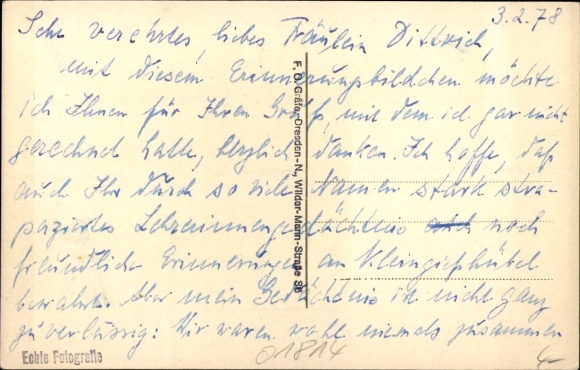 3.2.78
Sehr verehrtes, liebes Fräulein Dittrich,
mit diesem Erinnerungsbildchen möchte
ich Ihnen für Ihren Gruß, mit dem ich gar nicht
gerechnet hatte, herzlich danken. Ich hoffe, daß
auch Ihr durch so viele Namen stark stra-
paziertes Lehrerinnengedächtnis auch noch
freundliche Erinnerungen an Kleingießhübel
bewahrt. Aber mein Gedächtnis ist nicht ganz
zuverlässig: Wir waren wohl niemals zusammen
F. O. Gräfe, Dresden-N., Wilder-Mann-Straße 36
Echte Fotografie
01814